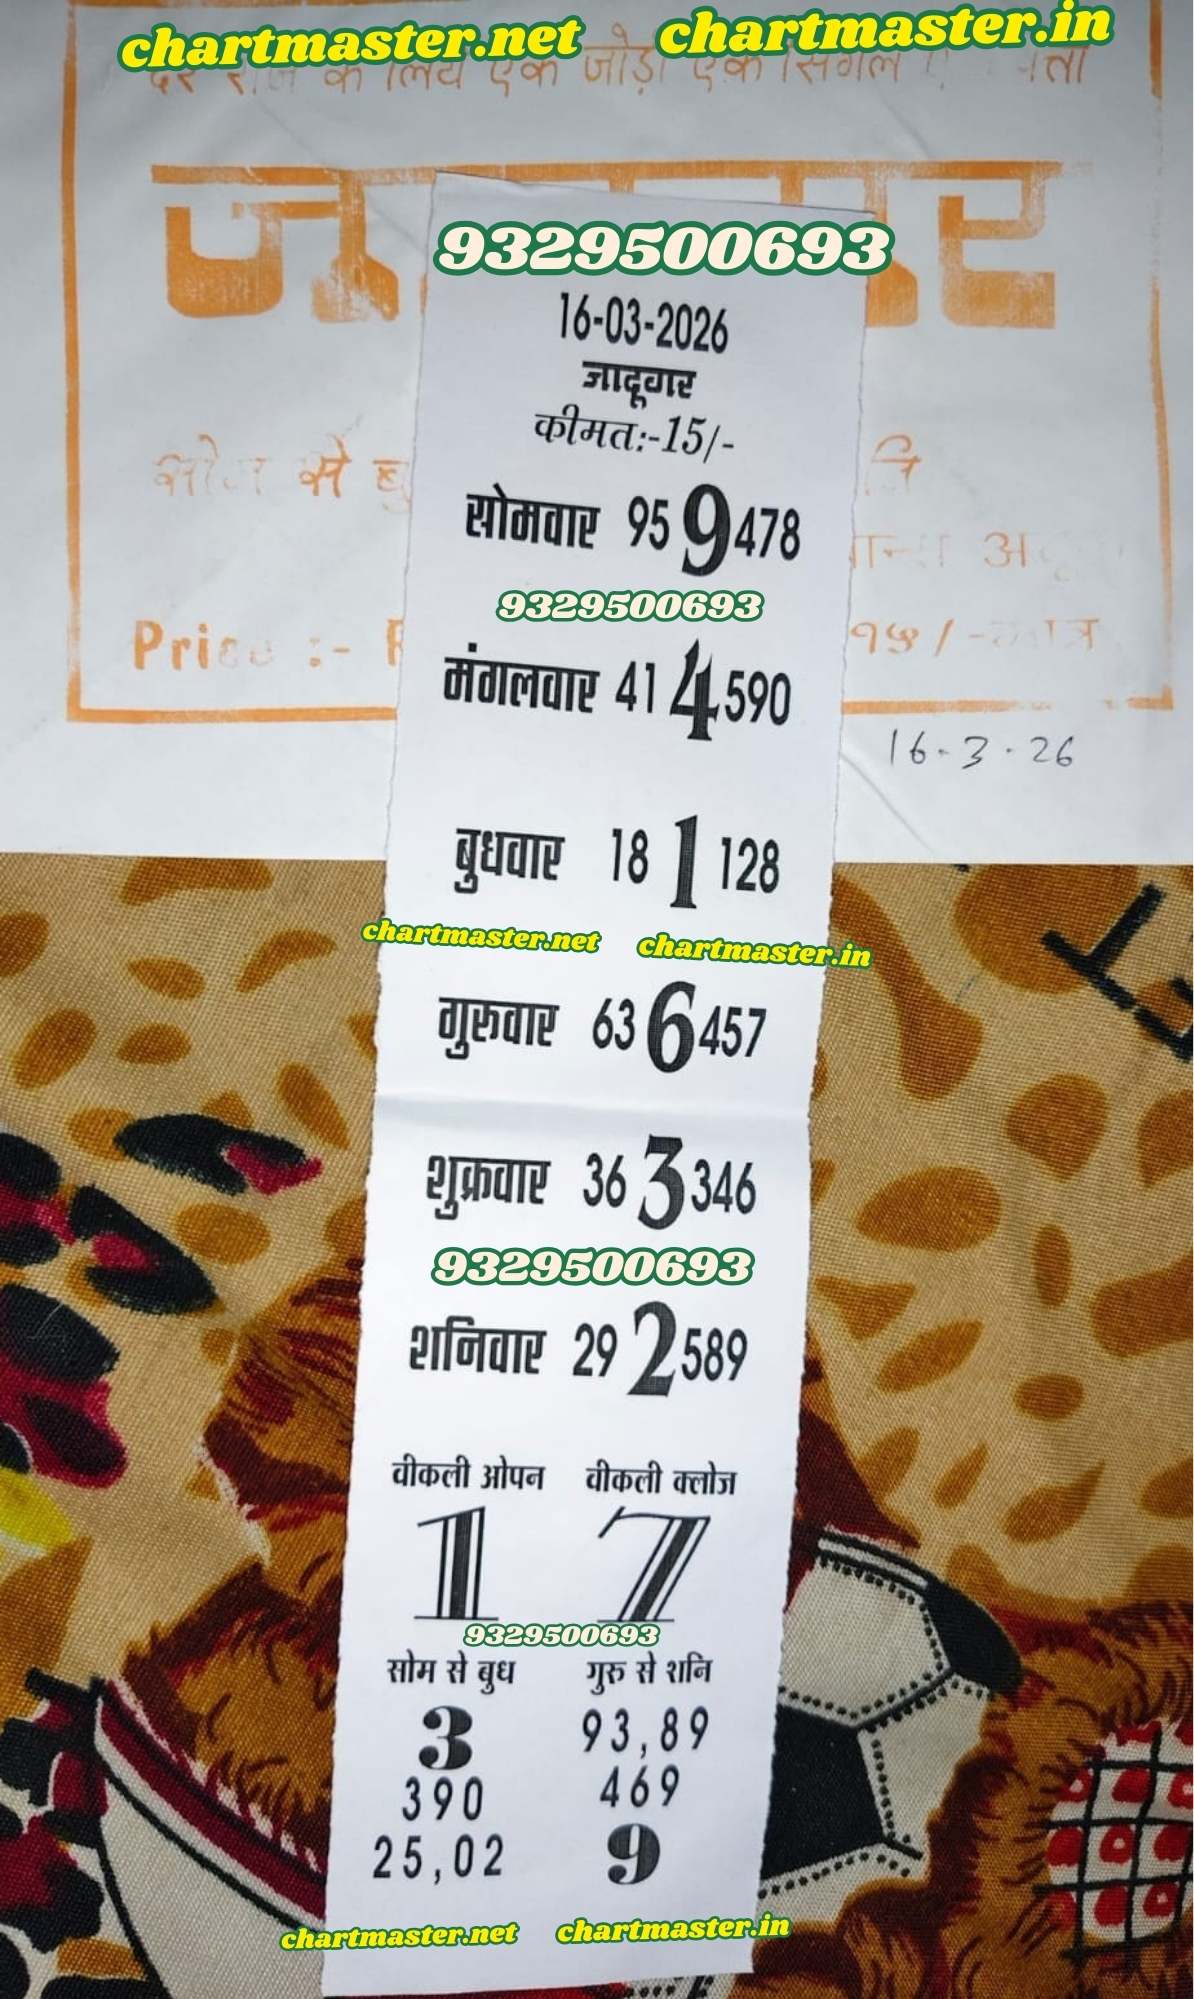 chartmaster.net chartmaster.in
के लिये एक जोड़ी एक सिंगल
9329500693
16-03-2026
जादूगर
कीमतः-15/-
से
सोमवार 95 9 478
9329500693
Price :-
१५/-
मंगलवार 41 4 590
16-3-26
बुधवार 18 1 128
chartmaster.net chartmaster.in
गुरुवार 63 6 457
शुक्रवार 36 3 346
9329500693
शनिवार 29 2 589
वीकली ओपन वीकली क्लोज
1 7
9329500693
सोम से बुध गुरु से शनि
3 93,89
390 469
25,02 9
chartmaster.net chartmaster.in